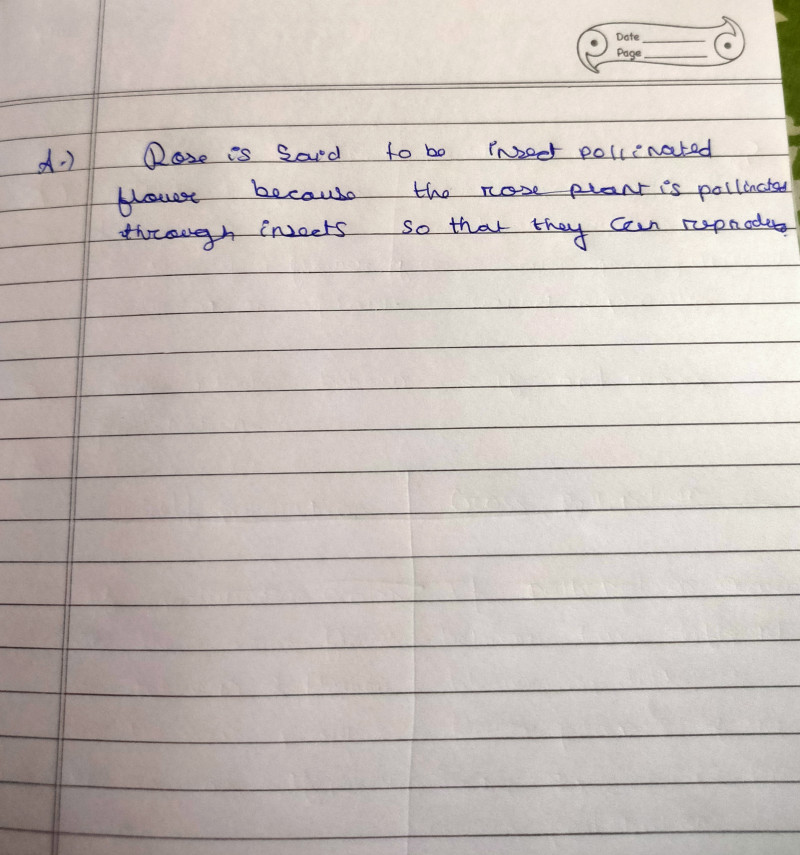 Date
Page
A.) Rose is said to be insect pollinated
flower because the rose plant is pollinated
through insects so that they can reproduce.